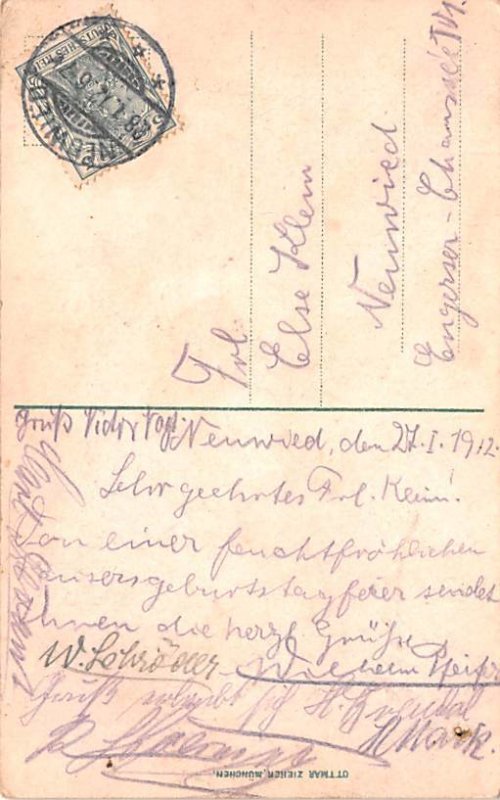 DEUTSCHES REICH
NEUWIED
Frl.
Else Klein
Neuwied
Engerser-Chaussée
Gruß Victor Vogt
Neuwied, den 27.I.1912.
Sehr geehrtes Frl. Klein!
Von einer feuchtfröhlichen
Kaisersgeburtstagfeier sendet
Ihnen die herzl. Grüße
W. Schröder Wilhelm
Gruß erlaubt sich H.
OTTMAR ZIEHER, MÜNCHEN